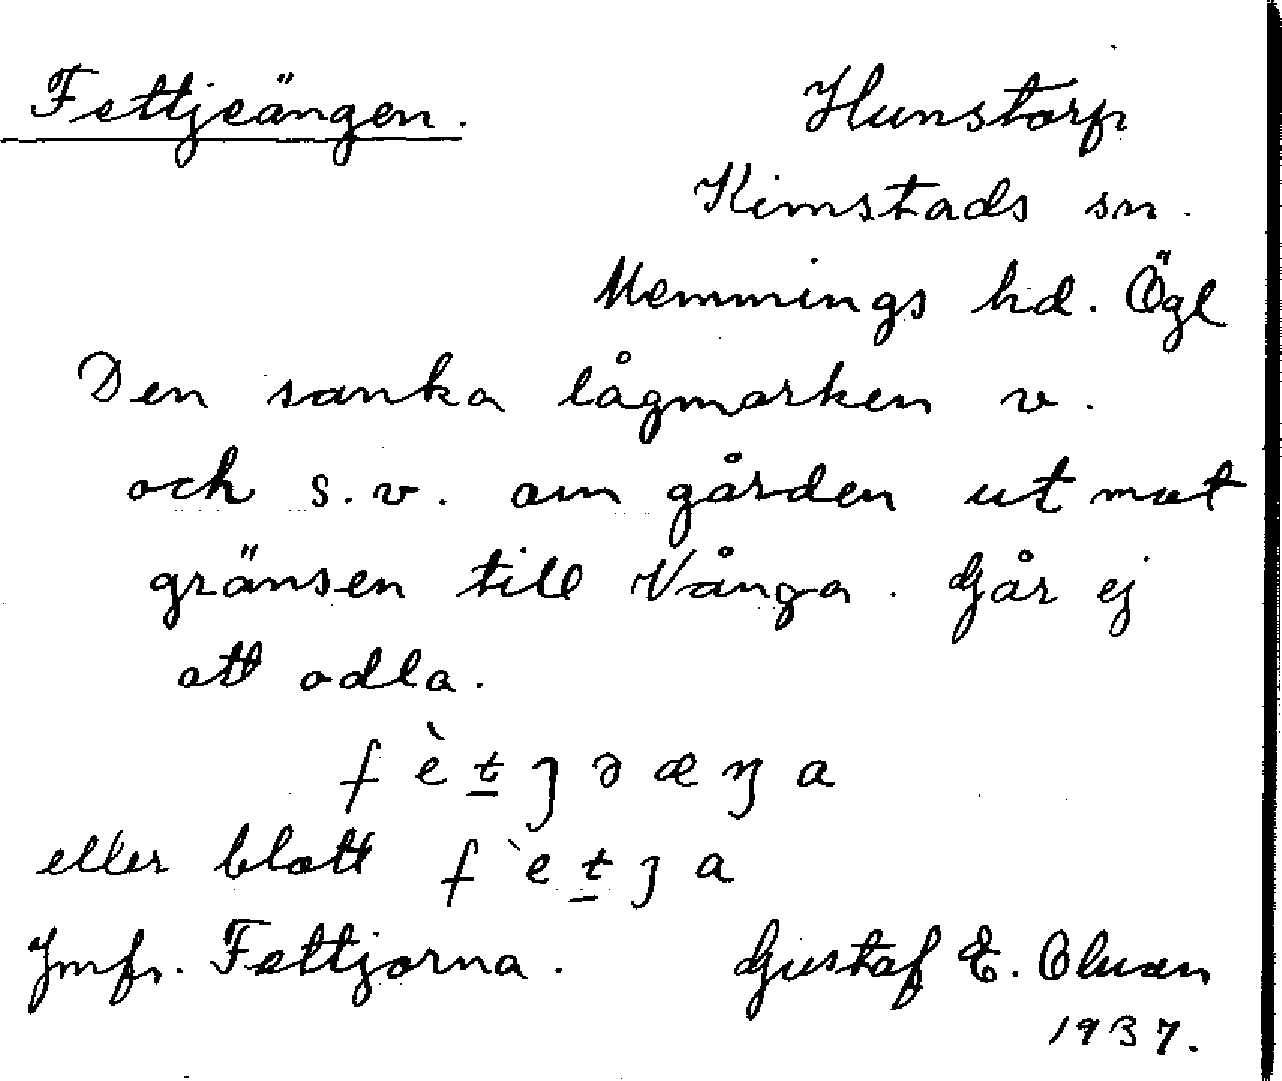 Fettjeängen. Hunstorp
Kimstads sn.
Memmings hd. Ögl
Den sanka lågmarken v.
och s.v. om gården ut mot
gränsen till Vånga. Går ej
att odla.
f è t ȷ ə æ ŋ a
eller blott f `e t ȷ a
Jmfr. Fettjorna. Gustaf E.
1937.